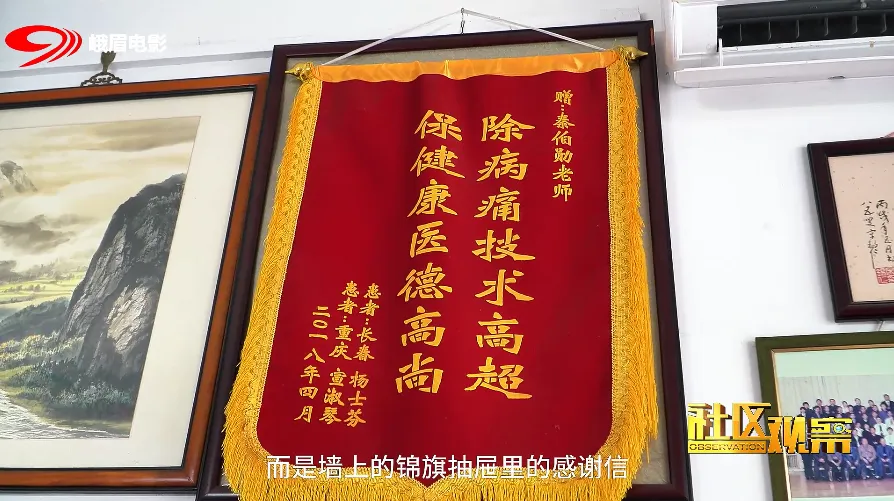 峨眉电影
赠:秦伯勋老师
除病痛技术高超
保健康医德高尚
患者:长春 杨士芬
患者:重庆 宣淑琴
二〇一八年四月
社区观察
OBSERVATION
而是墙上的锦旗抽屉里的感谢信